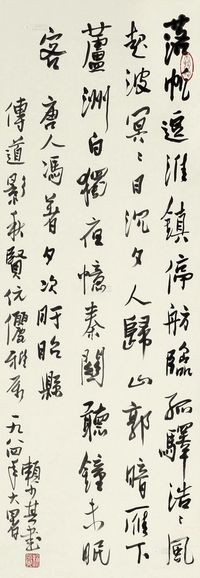 落帆逗淮鎮停舫臨孤驛浩〻風
起波冥〻日沉夕人歸山郭暗雁下
蘆洲白獨夜憶秦關聽鐘未眠
客
唐人馮著夕次盱眙縣
傳道影秋賢伉儷雅屬
一九八四年大暑
賴少其書